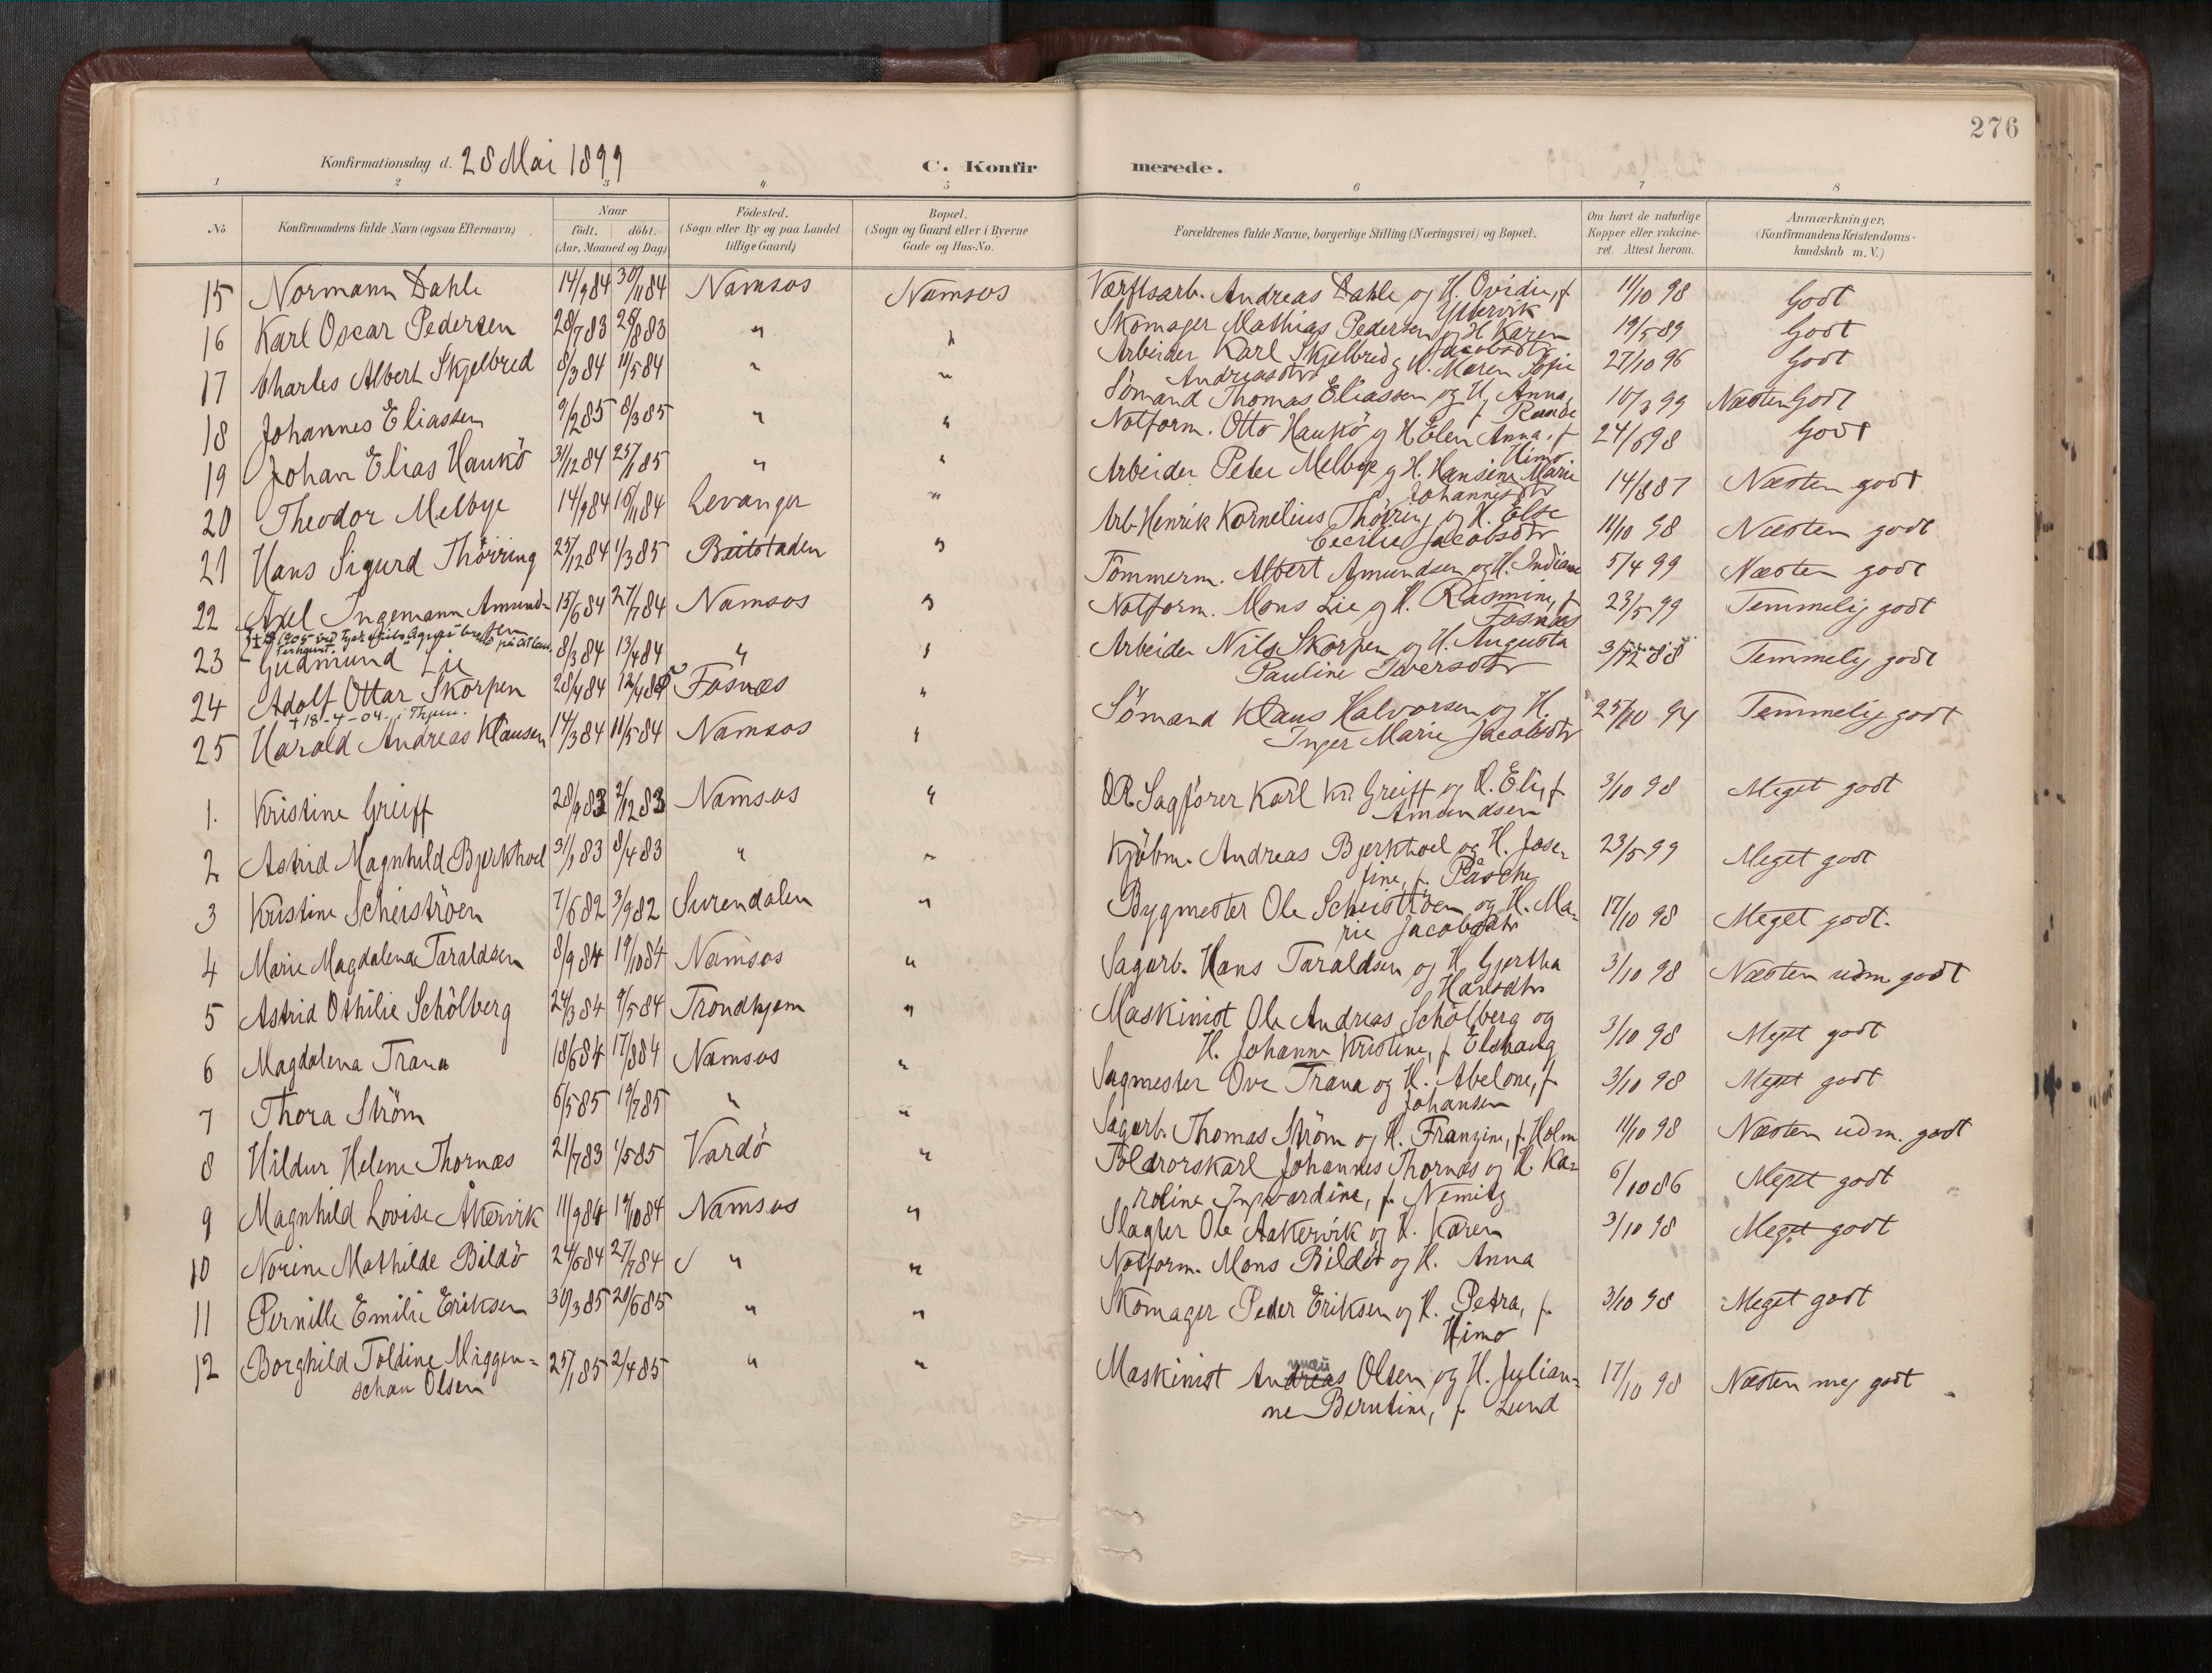 276
Konfirmationsdag d. 28 Mai 1899
C. Konfirmerede.
1 2 3 4 5 6 7 8
No
Konfirmandens fulde Navn (ogsaa Efternavn)
Naar
födt. döbt.
(Aar, Maaned og Dag)
Födested.
(Sogn eller By og paa Landet tillige Gaard)
Bopæl.
(Sogn og Gaard eller i Byerne Gade og Hus-No.
Forældrenes fulde Navne, borgerlige Stilling (Næringsvei) og Bopæl.
Om havt de naturlige Kopper eller vakcineret. Attest herom.
Anmærkninger. (Konfirmandens Kristendomskundskab m. V.)
15 Normann Dahle 14/9 84 30/11 84 Namsos Namsos Værftsarb. Andreas Dahle og H. Ovidie, f. Yttervik 11/10 98 Godt
16 Karl Oscar Pedersen 28/7 83 26/8 83 " " Skomager Mathias Pedersen og H. Karen Jacobsdtr 19/5 89 Godt
17 Charles Albert Skjelbred 8/3 84 11/5 84 " " Arbeider Karl Skjelbred og H. Maren Sofie Andreasdtr 27/10 96 Godt
18 Johannes Eliassen 9/2 85 8/3 85 " " Sømand Thomas Eliassen og H. Anna, f. 10/3 99 Næsten Godt
19 Johan Elias Haukö 31/12 84 25/1 85 " " Notform. Otto Haukö og H. Elen Anna, f. Himo 24/6 98 Godt
20 Theodor Melbye 14/9 84 16/11 84 Levanger " Arbeider Peter Melbye og H. Hansine Marie Johannesdtr 14/8 87 Næsten godt
21 Hans Sigurd Thörring 25/12 84 1/3 85 Beitstaden " Arb. Henrik Kornelius Thörring og H. Else Cecilie Jacobsdtr 11/10 98 Næsten godt
22 Axel Ingemann Amundsen 15/6 84 27/7 84 Namsos " Tømmerm. Albert Amundsen og H. Indiane 5/4 99 Næsten godt
23 Gudmund Lie 8/3 84 13/4 84 " " Notform. Mons Lie og H. Rasmine, f. Fosnæs 23/5 99 Temmelig godt
24 Adolf Ottar Skorpen 28/4 84 Fosnæs " Arbeider Nils Skorpen og H. Augusta Pauline Iversdtr 3/12 88 Temmelig godt
+ 18-4-04 i Thjem.
25 Harald Andreas Klausen 14/3 84 11/5 84 Namsos " Sömand Klaus Halvorsen og H. Inger Marie Jacobsdtr 25/10 94 Temmelig godt
1. Kristine Greiff 28/9 83 2/12 83 Namsos " OR Sagfører Karl Kr. Greiff og H. Eli, f. Amundsen 3/10 98 Meget godt
2 Astrid Magnhild Bjerkhoel 31/1 83 8/4 83 " " Kjöbm. Andreas Bjerkhoel og H. Josefine, f. Påsche 23/5 99 Meget godt
3 Kristine Scheiströen 7/6 82 3/9 82 Surendalen " Bygmester Ole Scheiströen og H. Marie Jacobsdtr 17/10 98 Meget godt.
4 Marie Magdalena Taraldsen 8/9 84 19/10 84 Namsos " Sagarb. Hans Taraldsen og H. Gjertha Hansdtr 3/10 98 Næsten udm. godt
5 Astrid Othilie Schölberg 24/3 84 4/5 84 Trondhjem " Maskinist Ole Andreas Schölberg og H. Johanne Kristine, f. Elshaug 3/10 98 Meget godt
6 Magdalena Trana 18/6 84 17/8 84 Namsos " Sagmester Ove Trana og H. Abelone, f. Johansen 3/10 98 Meget godt
7 Thora Ström 6/5 85 19/7 85 " " Sagarb. Thomas Ström og H. Franzine, f. Holm 11/10 98 Næsten udm. godt
8 Hildur Helene Thornæs 21/7 83 1/5 85 Vardö " Toldrorskarl Johannes Thornæs og H. Karoline Ingvardine, f. Nemitz 6/10 86 Meget godt
9 Magnhild Lovise Åkervik 11/9 84 19/10 84 Namsos " Slagter Ole Aakervik og H. Karen 3/10 98 Meget godt
10 Norine Mathilde Bildö 24/6 84 27/7 84 " " Notform. Mons Bildö og H. Anna
11 Pernille Emilie Eriksen 30/3 85 21/6 85 " " Skomager Peder Eriksen og H. Petra, f. Himo 3/10 98 Meget godt
12 Borghild Toldine Miggenschau Olsen 25/1 85 2/4 85 " " Maskinist Andreas Olsen og H. Julianne Berntine, f. Lund 17/10 98 Næsten meg godt